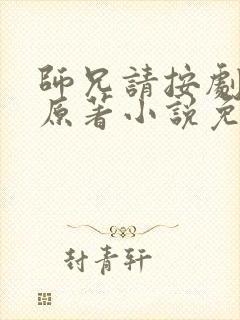 師兄請按劇
原著小說免
封青軒